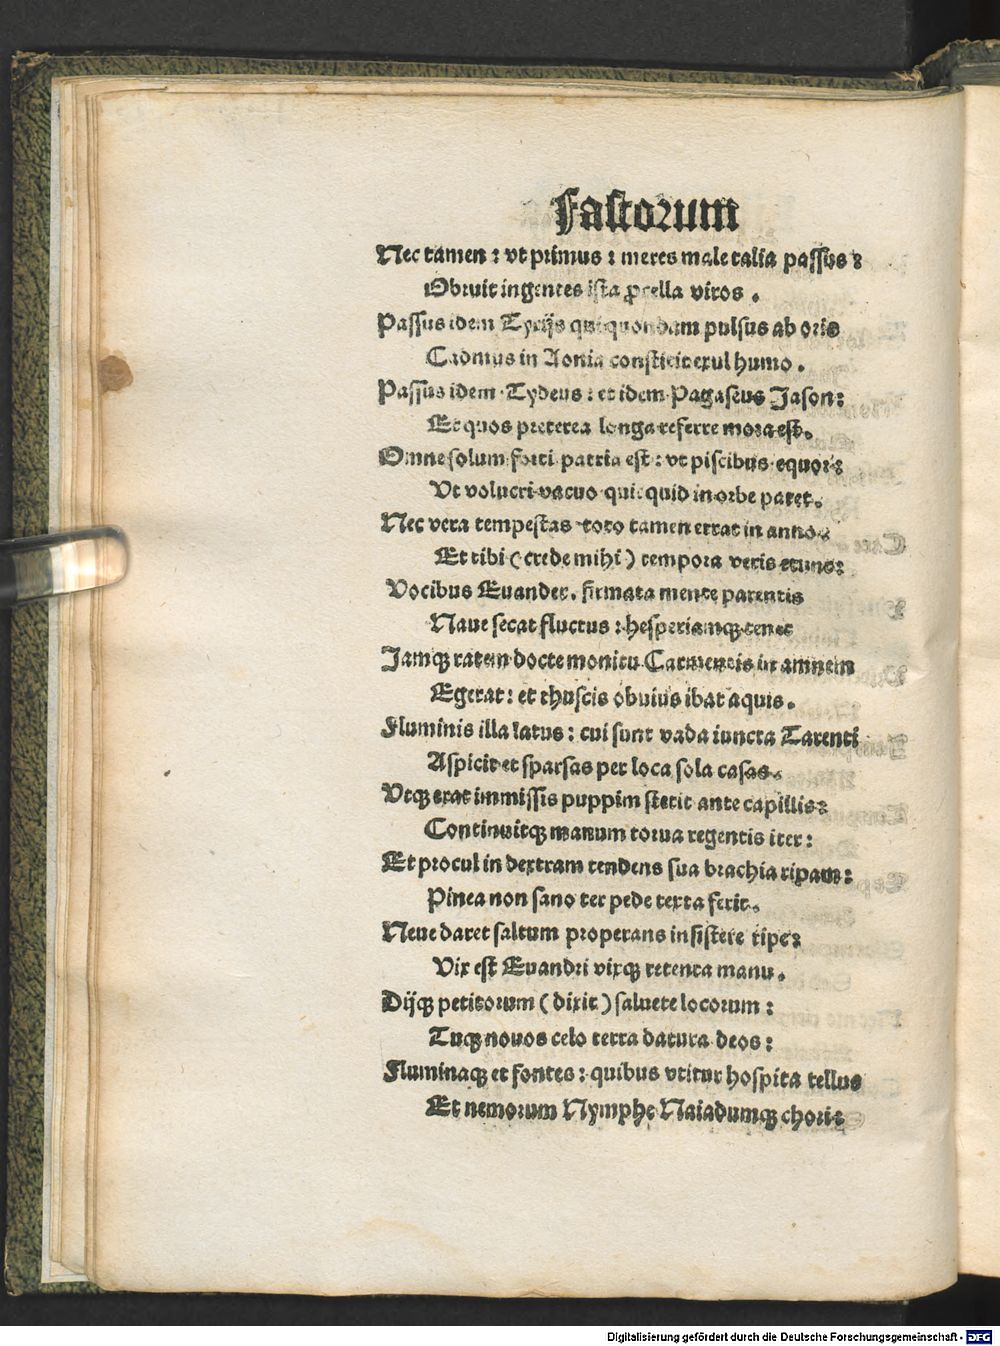 Fastorum
Nec tamen : vt primus : meres male talia passus :
Obruit ingentes ista ꝓcella viros .
Passus idem Tyrijs qui quondam pulsus ab oris
Cadmus in Aonia constitit exul humo .
Passus idem Tydeus : et idem Pagaseus Jason :
Et quos preterea longa referre mora est .
Omne solum forti patria est : vt piscibus equor :
Vt volucri vacuo quicquid in orbe patet .
Nec vera tempestas toto tamen errat in anno :
Et tibi ( crede mihi ) tempora veris erunt :
Vocibus Euander . firmata mente parentis
Naue secat fluctus : hesperiamqꝫ tenet
Jamqꝫ ratem docte monitu Carmentis in amnem
Egerat : et thuscis obuius ibat aquis .
Fluminis illa latus : cui sunt vada iuncta Tarenti
Aspicit et sparsas per loca sola casas .
Vtqꝫ erat immissis puppim stetit ante capillis :
Continuitqꝫ manum torua regentis iter :
Et procul in dextram tendens sua brachia ripam :
Pinea non sano ter pede texta ferit .
Neue daret saltum properans insistere ripe :
Vix est Euandri vixqꝫ retenta manu .
Dijqꝫ petitorum ( dixit ) saluete locorum :
Tuqꝫ nouos celo terra datura deos :
Fluminaqꝫ et fontes : quibus vtitur hospita tellus
Et nemorum Nymphe Naiadumqꝫ chori :
Digitalisierung gefördert durch die Deutsche Forschungsgemeinschaft - DFG